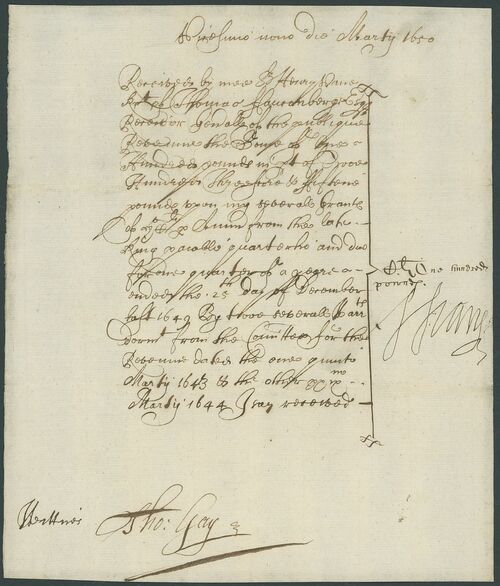 Vicesimo nono die Martij 1650
Received by mee Sr Henry Vane
Knt of Thomas Fauconberge Esqr
Receivor Genall of the publique
Revenue the Some of One
Hundred pounds in pt of
Hundred Threescore & fifteene
pounds upon my severall Graunts
of p Annum from the late
King payable quarterlie and due
for one quarter of a yeare
ended the 25th day of December
last 1649 By twoe severall Warr
dormt from the Comittee for the
Revenue dated the one quinto
Martij 1643 & the other
Martij 1644 I say received
One hundred
pounds
H Vane
Wittnes
Tho: Gay